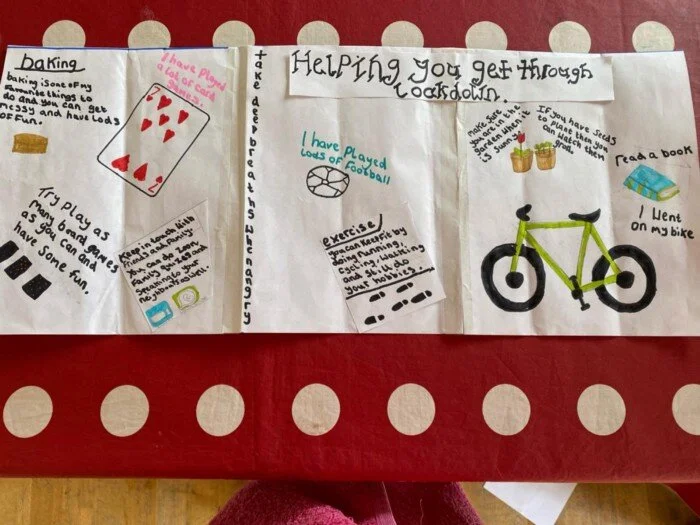 baking
baking is one of my
favourite things to
do and you can get
messy and have lots
of fun.
I have played
a lot of card
games.
7
7
Try play as
many board games
as you can and
have some fun.
Keep in touch with
friends and family.
You can do zoom
family
speaking to your
take deep breaths when angry
Helping you get through
lockdown.
I have played
lots of football
exercise
you can keep fit by
doing running,
cycling, walking
and still do
your hobbies.
make sure
you are in the
garden when it
is sunny
If you have seeds
to plant then you
can watch them
grow
read a book
I went
on my bike